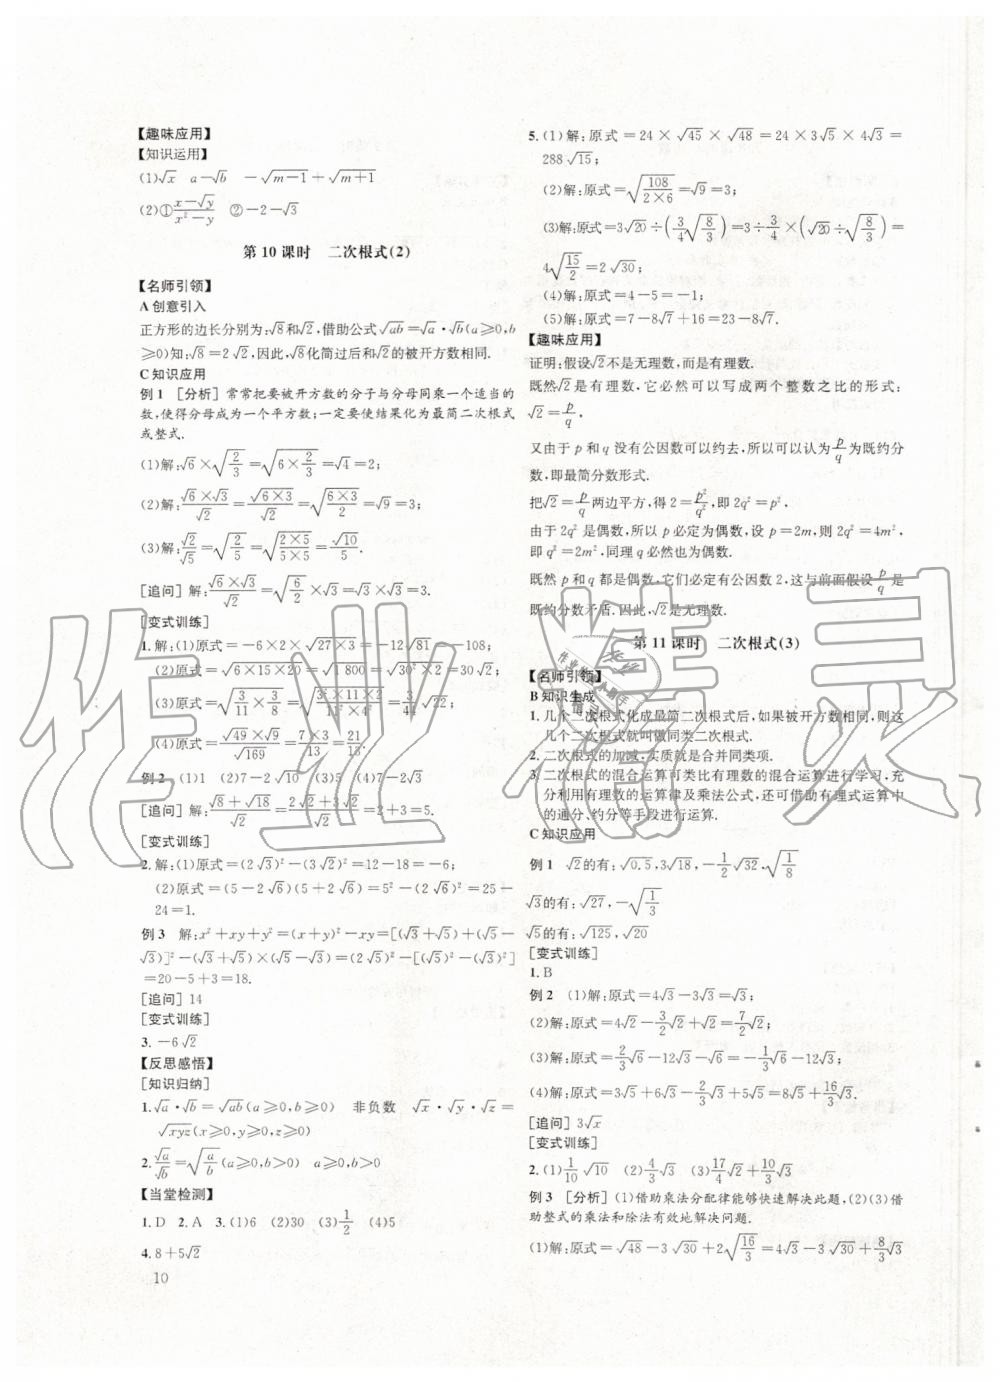 【趣味应用】
【知识运用】
(1)√x  a-√b  -√(m-1)+√(m+1)
(2)①(x-√y)/(x²-y)  ②-2-√3
第10课时  二次根式(2)
【名师引领】
A 创意引入
正方形的边长分别为:√8和√2,借助公式√(ab)=√a·√b(a≥0,b
≥0)知:√8=2√2,因此,√8化简过后和√2的被开方数相同.
C 知识应用
例1 [分析] 常常把要被开方数的分子与分母同乘一个适当的
数,使得分母成为一个平方数;一定要使结果化为最简二次根式
或整式.
(1)解:√6×√(2/3)=√(6×2/3)=√4=2;
(2)解:(√6×√3)/√2=√(6×3)/√2=√((6×3)/2)=√9=3;
(3)解:√2/√5=√(2/5)=√((2×5)/(5×5))=√10/5.
[追问] 解:(√6×√3)/√2=√(6/2)×√3=√3×√3=3.
[变式训练]
1.解:(1)原式=-6×2×√(27×3)=-12√81=-108;
(2)原式=√(6×15×20)=√1800=30√2;
(3)原式=√(3/11×8/3)=√((2³×11×2)/(11²×4²))=
(4)原式=(√49×√9)/√169=(7×3)/13=21/13.
例2 (1)1  (2)7-2√10  (3)5  (4)7-2√3
[追问] 解:(√8+√18)/√2=(2√2+3√2)/√2=2+3=5.
[变式训练]
2.解:(1)原式=(2√3)²-(3√2)²=12-18=-6;
(2)原式=(5-2√6)(5+2√6)=5²-(2√6)²=25-
24=1.
例3 解:x²+xy+y²=(x+y)²-xy=[(√3+√5)+(√5-
√3)]²-(√3+√5)×(√5-√3)=(2√5)²-[(√5)²-(√3)²]
=20-5+3=18.
[追问] 14
[变式训练]
3.-6√2
【反思感悟】
[知识归纳]
1.√a·√b=√(ab)(a≥0,b≥0)  非负数  √x·√y·√z=
√(xyz)(x≥0,y≥0,z≥0)
2.√a/√b=√(a/b)(a≥0,b>0)  a≥0,b>0
【当堂检测】
1.D  2.A  3.(1)6  (2)30  (3)1/2  (4)5
4.8+5√2
10
5.(1)解:原式=24×√45×√48=24×3√5×4√3=
288√15;
(2)解:原式=√(108/(2×6))=√9=3;
(3)解:原式=3√20÷(3/4√(8/3))=3÷3/4×(√20÷√(8/3))=
4√(15/2)=2√30;
(4)解:原式=4-5=-1;
(5)解:原式=7-8√7+16=23-8√7.
【趣味应用】
证明:假设√2不是无理数,而是有理数.
既然√2是有理数,它必然可以写成两个整数之比的形式:
√2=p/q.
又由于p和q没有公因数可以约去,所以可以认为p/q为既约分
数,即最简分数形式.
把√2=p/q两边平方,得2=p²/q²,即2q²=p².
由于2q²是偶数,所以p必定为偶数,设p=2m,则2q²=4m²,
即q²=2m²,同理q必然也为偶数.
既然p和q都是偶数,它们必定有公因数2,这与前面假设p/q是
既约分数矛盾.因此,√2是无理数.
第11课时  二次根式(3)
【名师引领】
B 知识生成
1.几个二次根式化成最简二次根式后,如果被开方数相同,则这
几个二次根式就叫做同类二次根式.
2.二次根式的加减,实质就是合并同类项.
3.二次根式的混合运算可类比有理数的混合运算进行学习,充
分利用有理数的运算律及乘法公式,还可借助有理式运算中
的通分、约分等手段进行运算.
C 知识应用
例1 √2的有:√0.5,3√18,-1/2√32,√(1/8)
√3的有:√27,-√(1/3)
√5的有:√125,√20
[变式训练]
1.B
例2 (1)解:原式=4√3-3√3=√3;
(2)解:原式=4√2-3/2√2+√2=7/2√2;
(3)解:原式=2/3√6-√6=-1/3√6;
(4)解:原式=3√5+6√3-2/3√3+5√5=8√5+16/3√3.
[追问] 3√x
[变式训练]
2.(1)1/10√10  (2)4/3√3  (3)17/4√2+10/3√3
例3 [分析] (1)借助乘法分配律能够快速解决此题,(2)(3)借
助整式的乘法和除法有效地解决问题.
(1)解:原式=√48-3√30+2√(16/3)=4√3-3√30+8/3√3
作业精灵